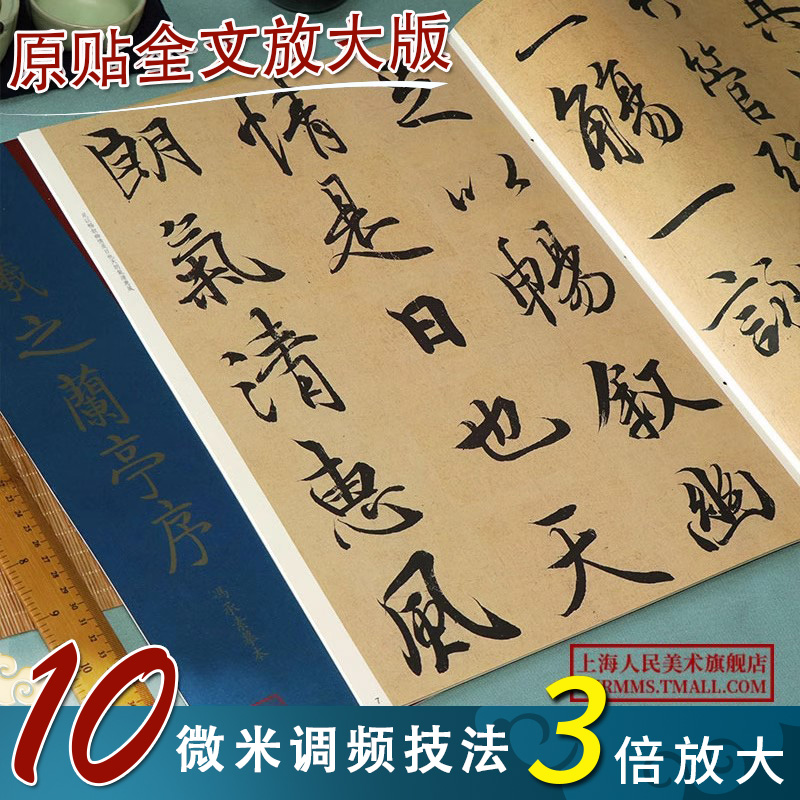 原贴全文放大版
管弦
一觴一詠
足以暢叙幽
情是日也天
朗氣清惠風
羲之蘭亭序
馮承素摹本
7
上海人民美术旗舰店
RMMS.TMALL.COM
10微米调频技法3倍放大